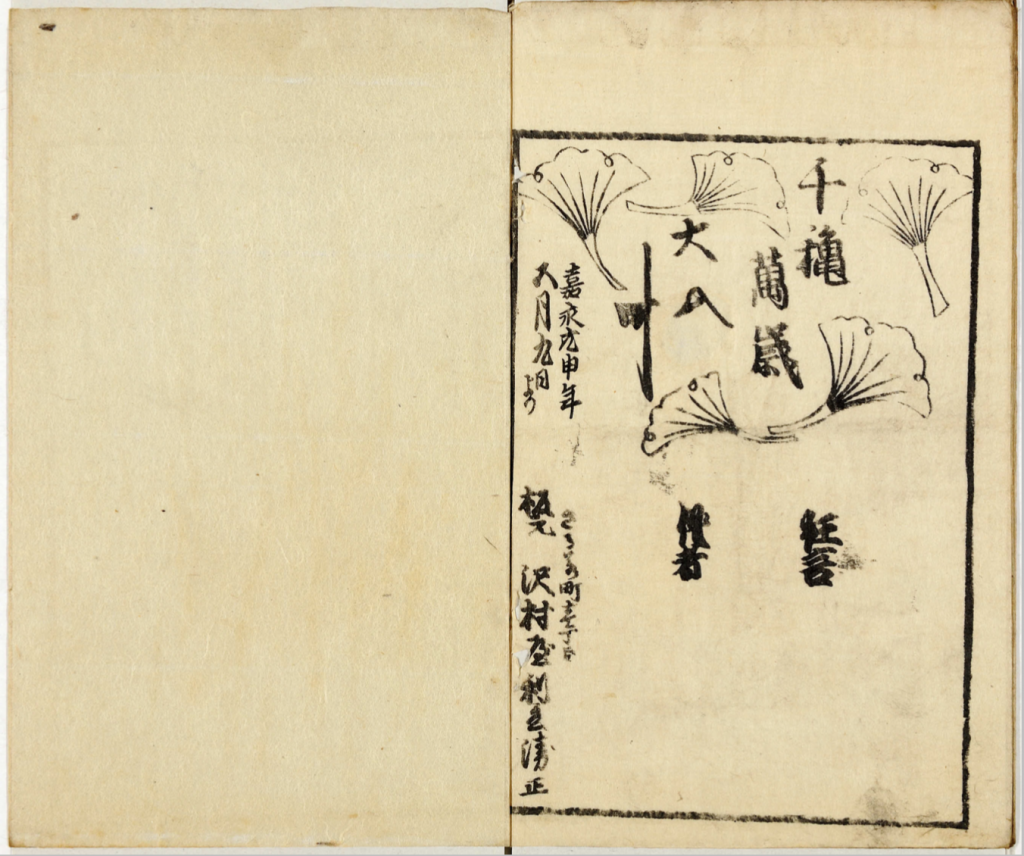 千穐
萬歳
大入
叶
狂言
役者
嘉永戊申年
八月九日より
さるわか町壱丁目
板元 沢村屋利兵衛正